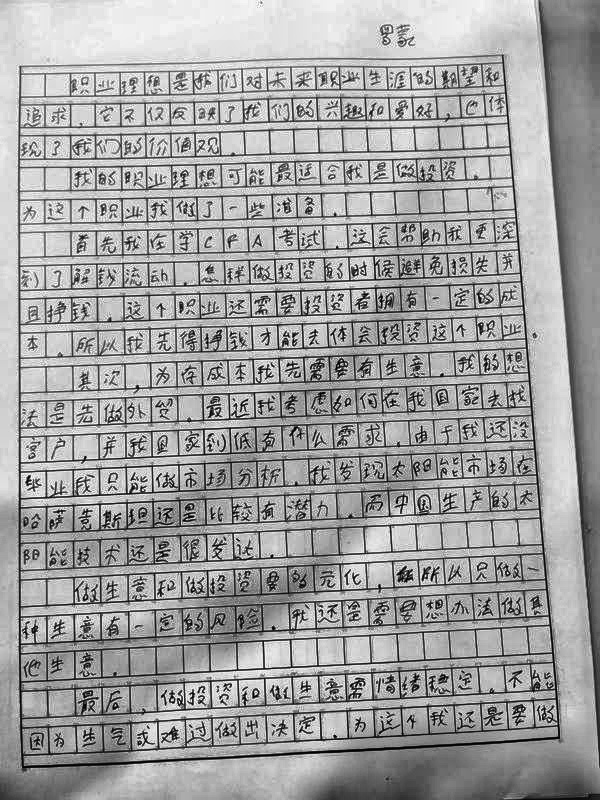 蒙
职业理想是我们对未来职业生涯的期望和
追求，它不仅反映了我们的兴趣和爱好，也体
现了我们的价值观。
我的职业理想可能最适合我是做投资。
为这个职业我做了一些准备。
首先我在学CFA考试。这会帮助我更深
刻了解钱流动。怎样做投资的时候避免损失并
且挣钱。这个职业还需要投资者拥有一定的成
本。所以我先得挣钱才能去体会投资这个职业。
其次，为存成本我先需要有生意。我的想
法是先做外贸。最近我考虑如何在我国家去找
客户，并我国家到低有什么需求。由于我还没
毕业我只能做市场分析。我发现太阳能市场在
哈萨克斯坦还是比较有潜力。而中国生产的太
阳能技术还是很发达。
做生意和做投资要多元化，所以只做一
种生意有一定的风险。我还是需要想办法做其
他生意。
最后，做投资和做生意需情绪稳定。不能
因为生气或难过做出决定。为这个我还是要做